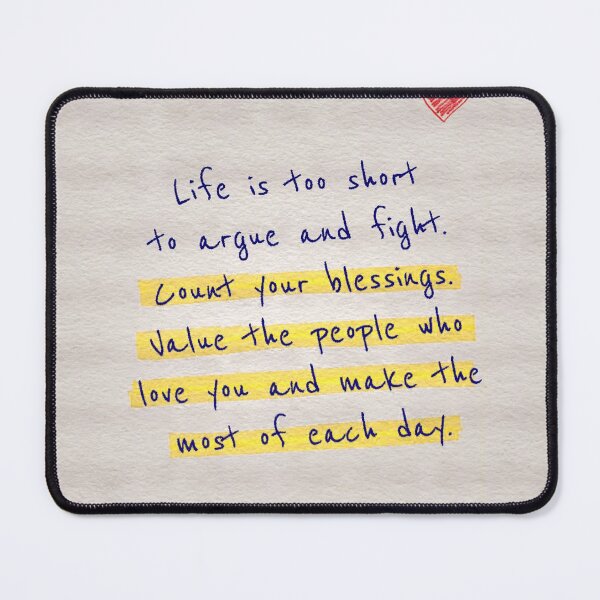 Life is too short
to argue and fight.
Count your blessings.
Value the people who
love you and make the
most of each day.